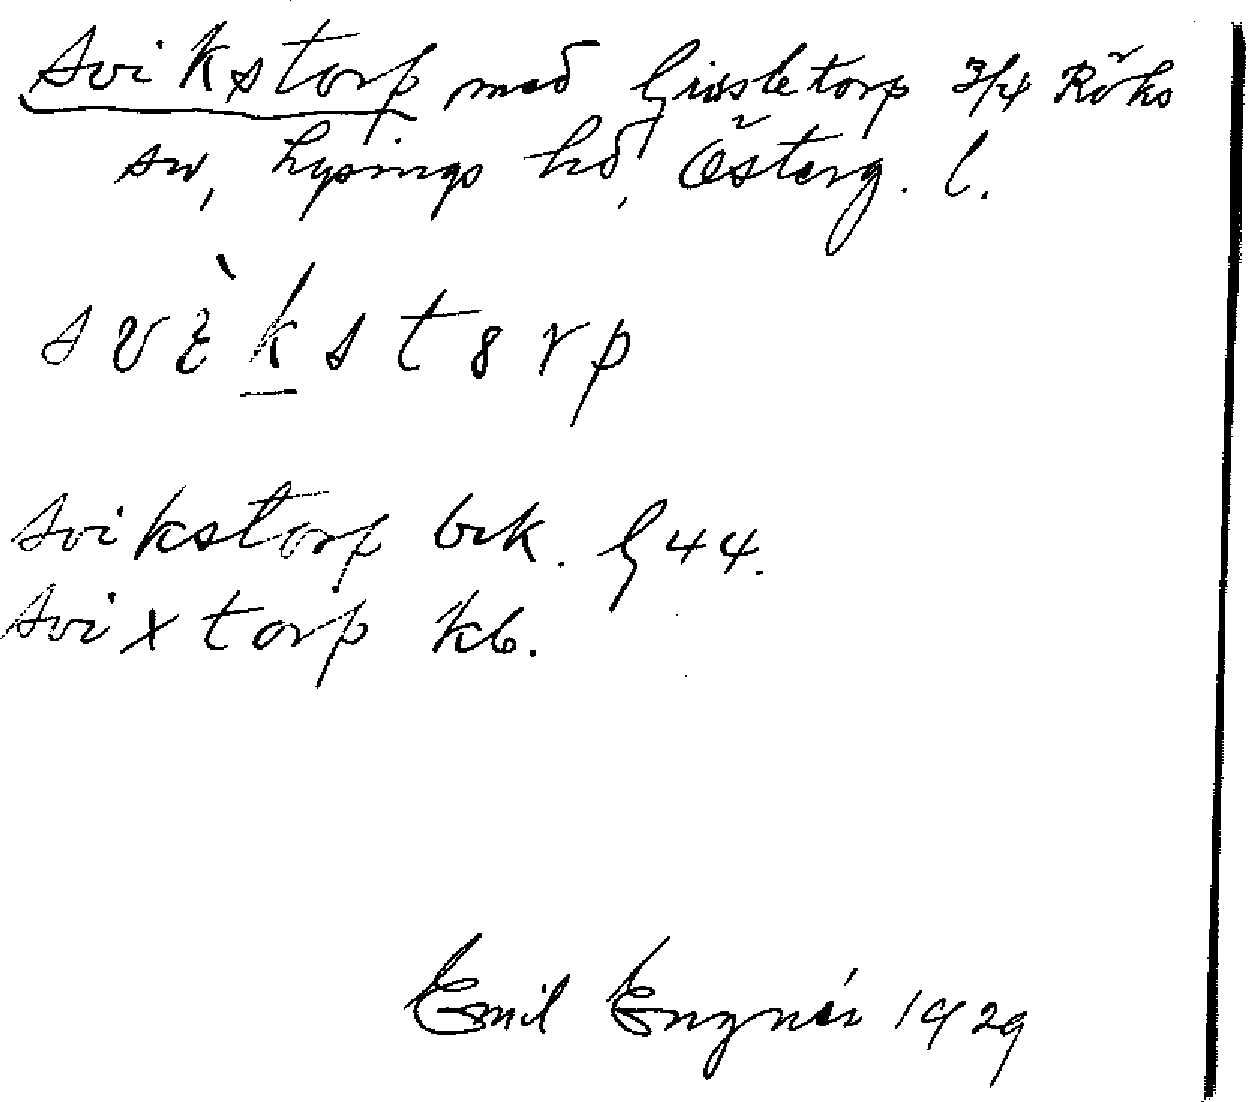 Svikstorp med Gisletorp 3/4 Röks
sn, Lysings hd, Österg. l.
svὲkstorp
Svikstorp brk. G 44.
Svixtorp kb.
Emil Engnér 1929